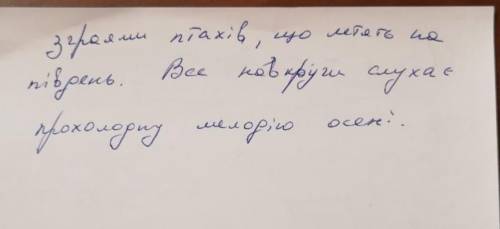 зграями птахів, що летять на
південь. Все навкруги слухає
прохолодну мелодію осені.